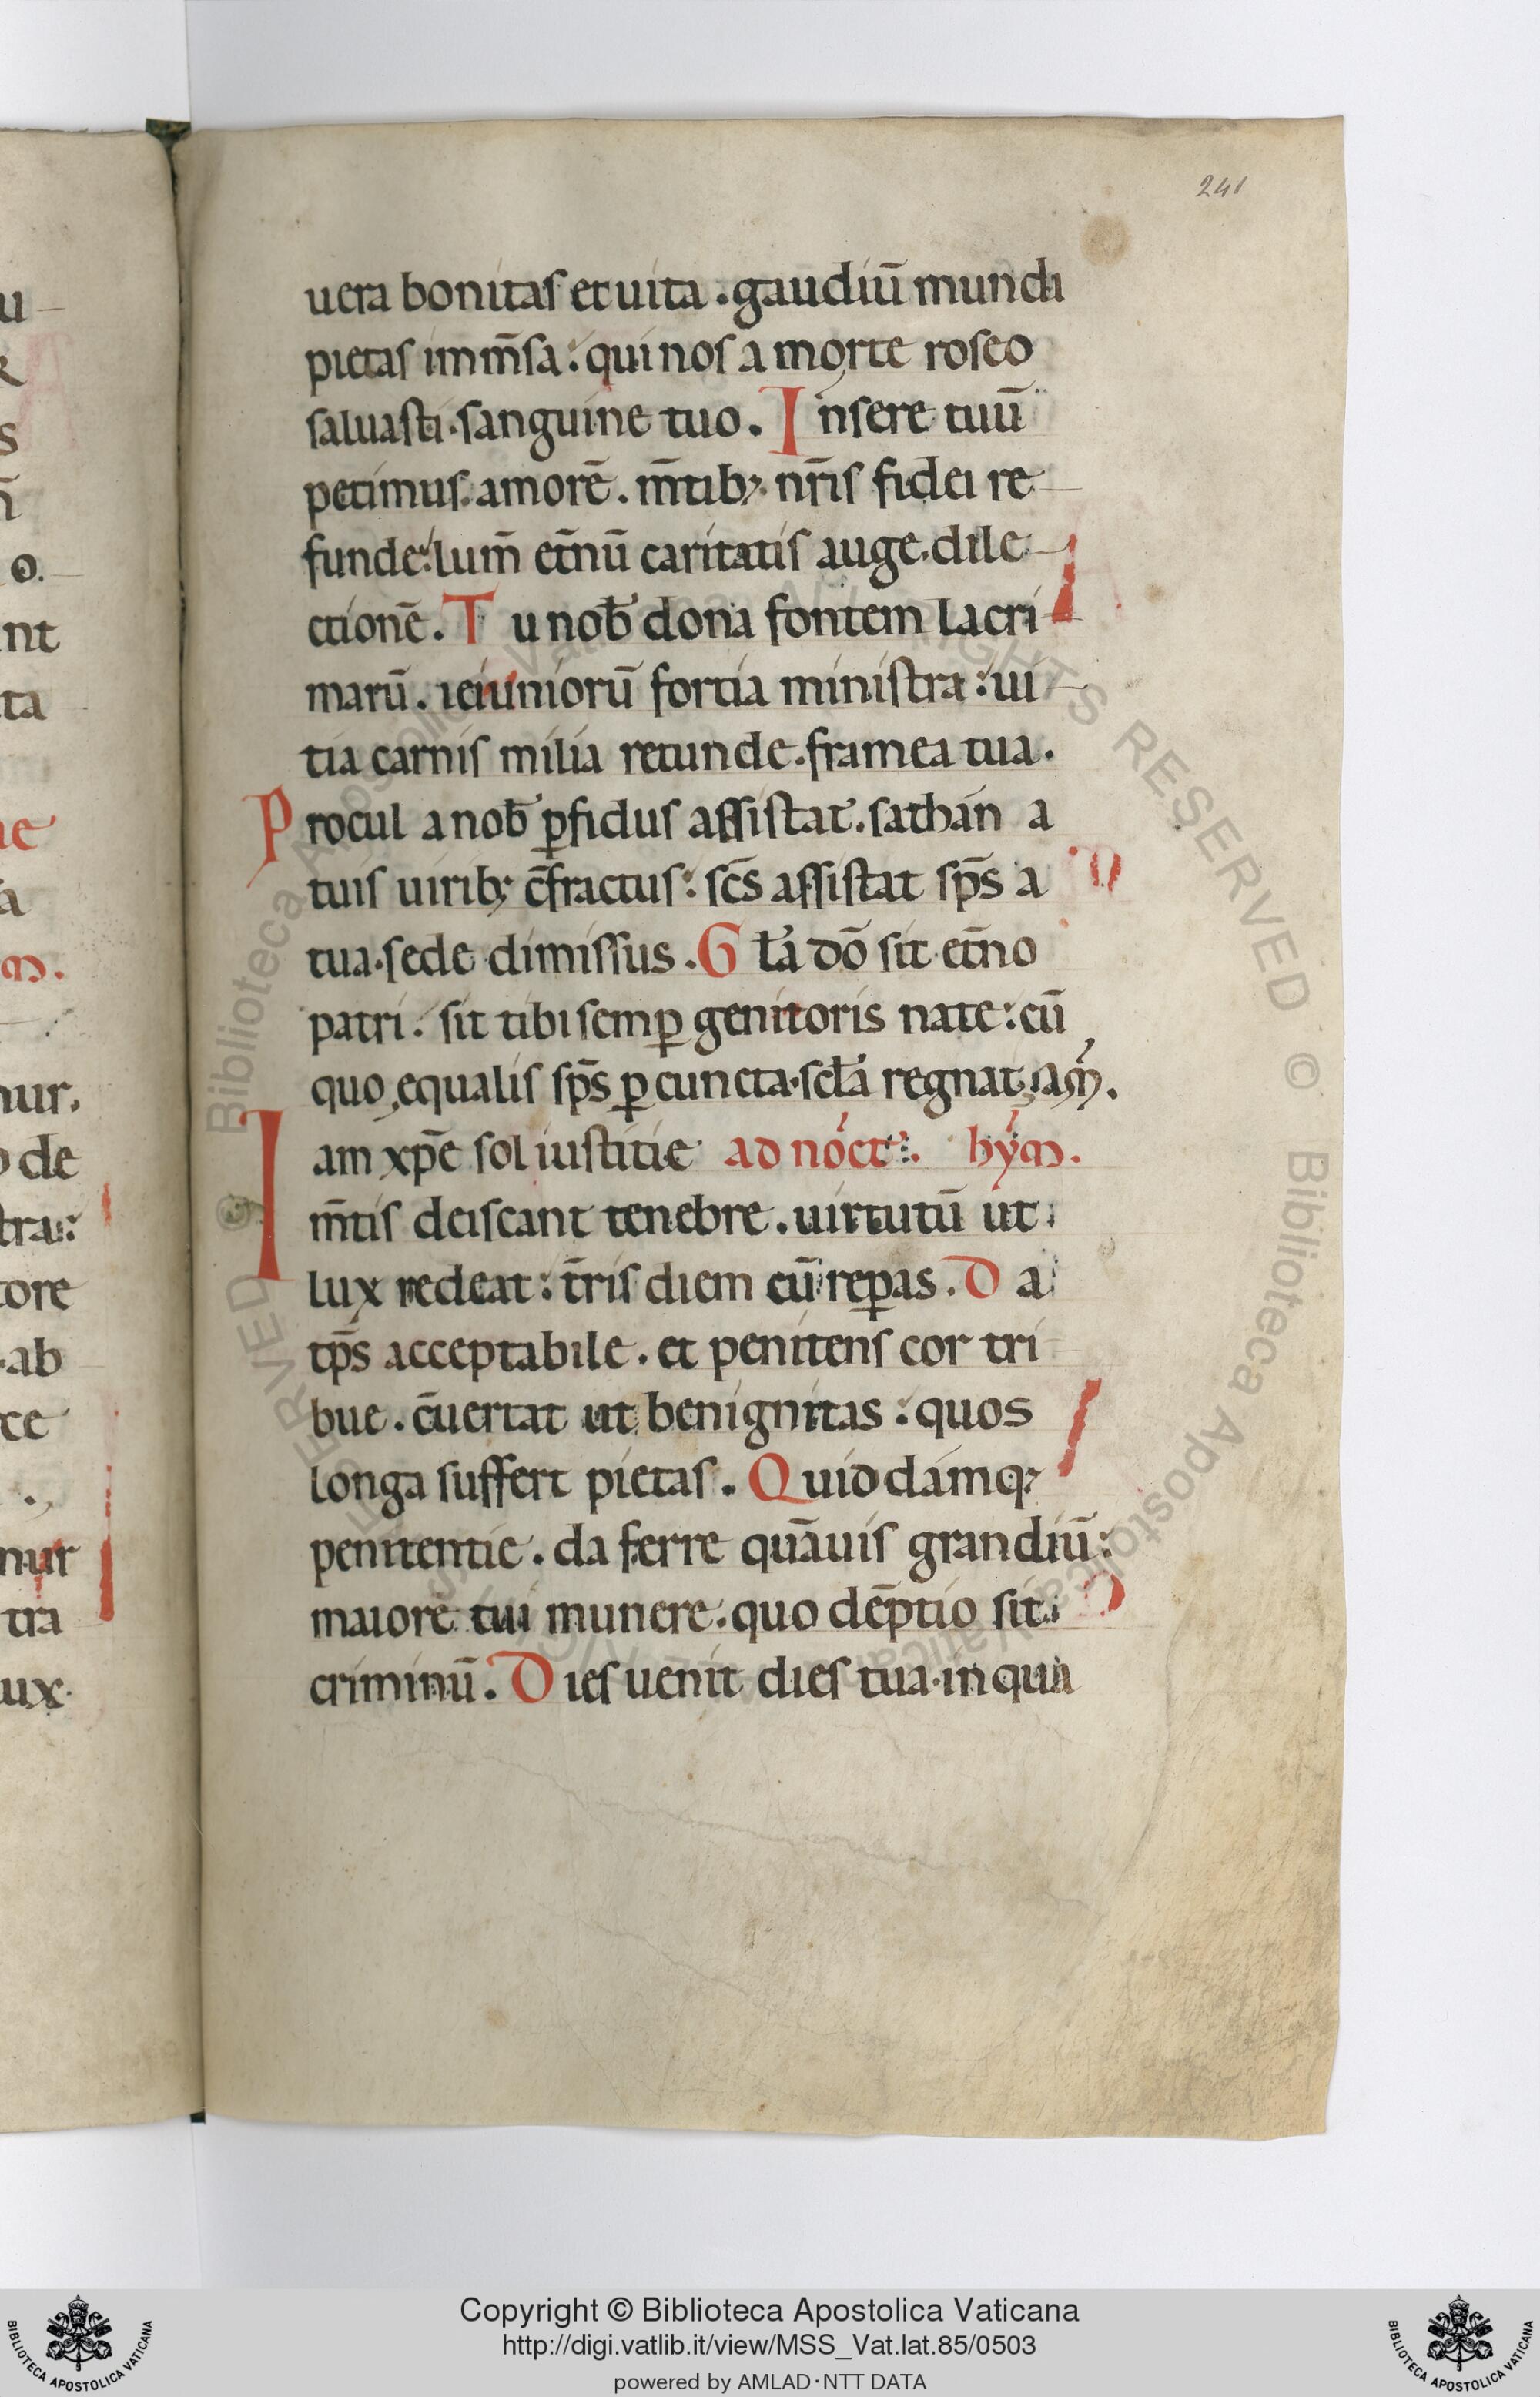 241
uera bonitas et uita . gaudiū mundi
pietas imm̄sa : qui nos a morte roseo
saluasti . sanguine tuo . Insere tuū
petimus . amorē . m̄tib; nr̄is fidei re
funde : lum̄ et̄nū caritatis auge . dile
ctionē . Tu nob̄ dona fontem lacri
marū . ieiuniorū fortia ministra : ui
tia carnis milia retunde . framea tua .
Procul a nob̄ ꝑfidus assistat . sathan a
tuis uirib; c̄fractus : sc̄s assistat sp̄s a
tua . sede dimissus . Gl̄a dō sit et̄no
patri . sit tibi semꝑ genitoris nate : cū
quo equalis sp̄s ꝑ cuncta . scl̄a regnat . am̄.
Iam xp̄e sol iustitie ad noct . hym .
m̄tis deiscant tenebre . uirtutū ut
lux redeat : t̄ris diem cū reꝑas . Da
tp̄s acceptabile . et penitens cor tri
bue . c̄uertat ut benignitas : quos
longa suffert pietas . Quiddamq;
penitentie . da ferre quāuis grandiū :
maiore tui munere . quo dēptio sit
criminū . Dies uenit dies tua . in qua
u
s
o.
nt
ta
ur.
de
tra :
tore
ab
ce
nur
tra
ux.
Biblioteca Apostolica Vaticana © ALL RIGHTS RESERVED ©
Copyright © Biblioteca Apostolica Vaticana
http://digi.vatlib.it/view/MSS_Vat.lat.85/0503
powered by AMLAD·NTT DATA
BIBLIOTECA APOSTOLICA VATICANA
BIBLIOTECA APOSTOLICA VATICANA